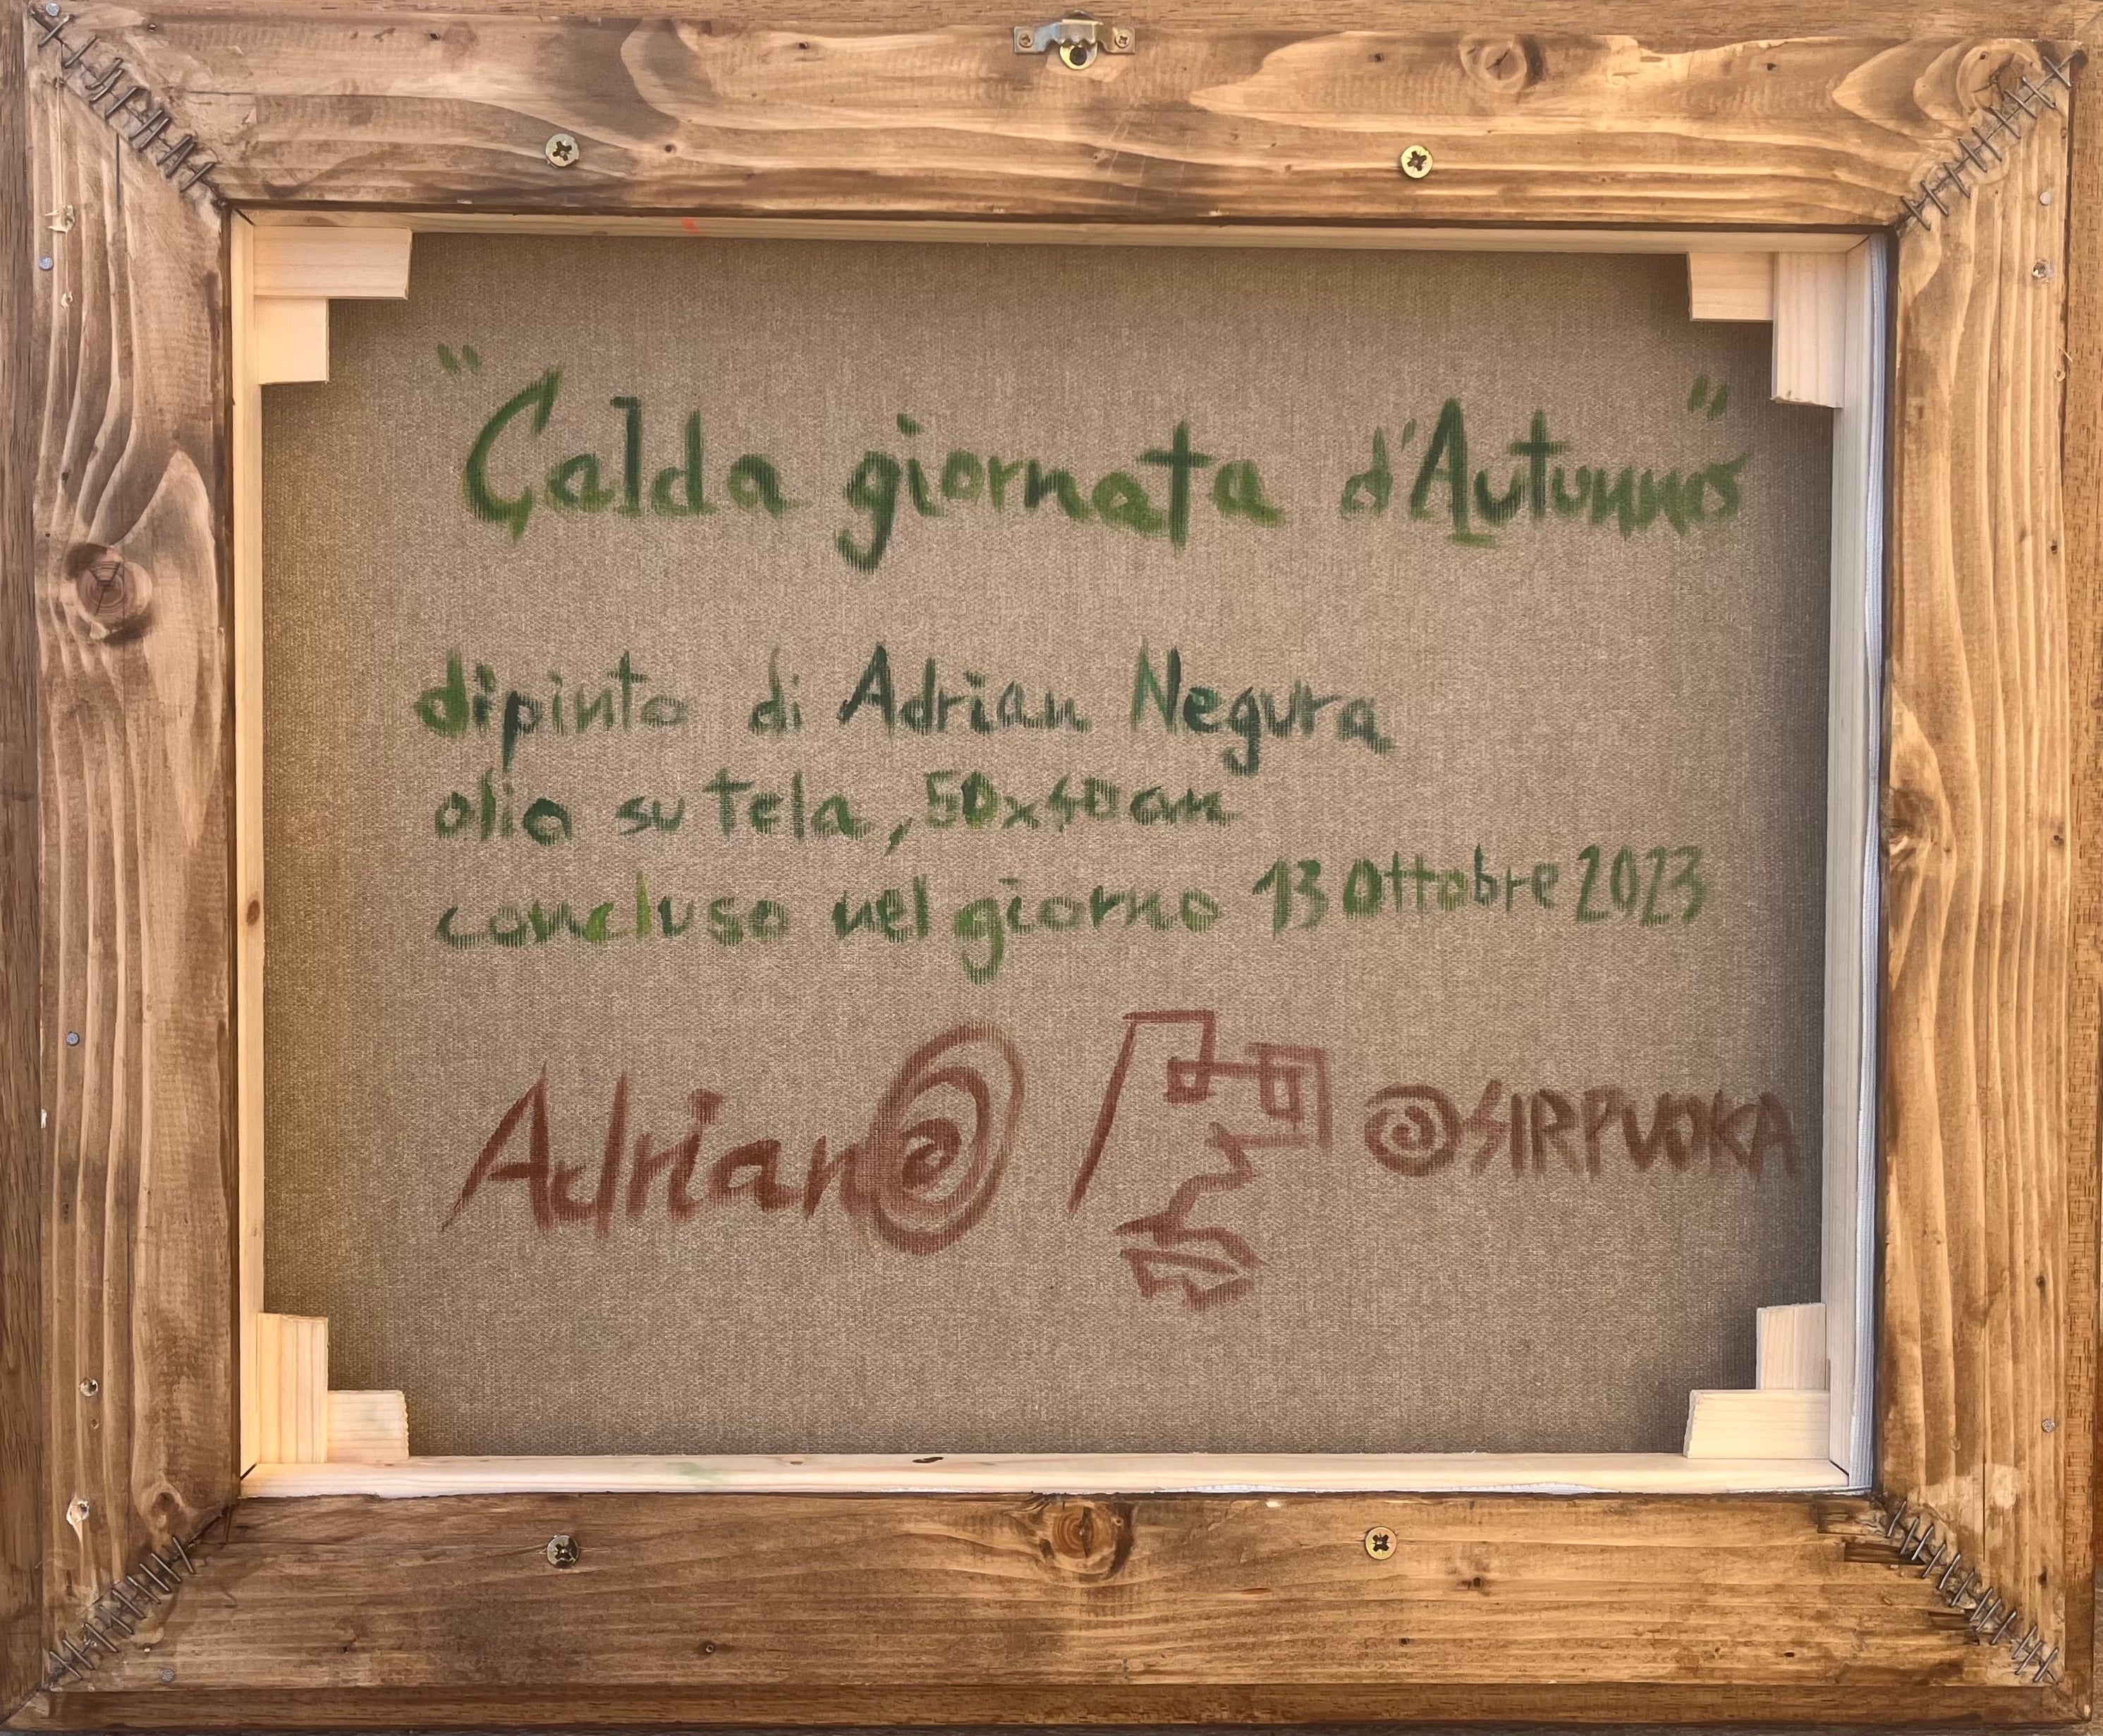 "Calda giornata d'Autunno"
dipinto di Adrian Negura
olio su tela, 50x40cm
concluso nel giorno 13 Ottobre 2023
Adrian @SIRPUOKA